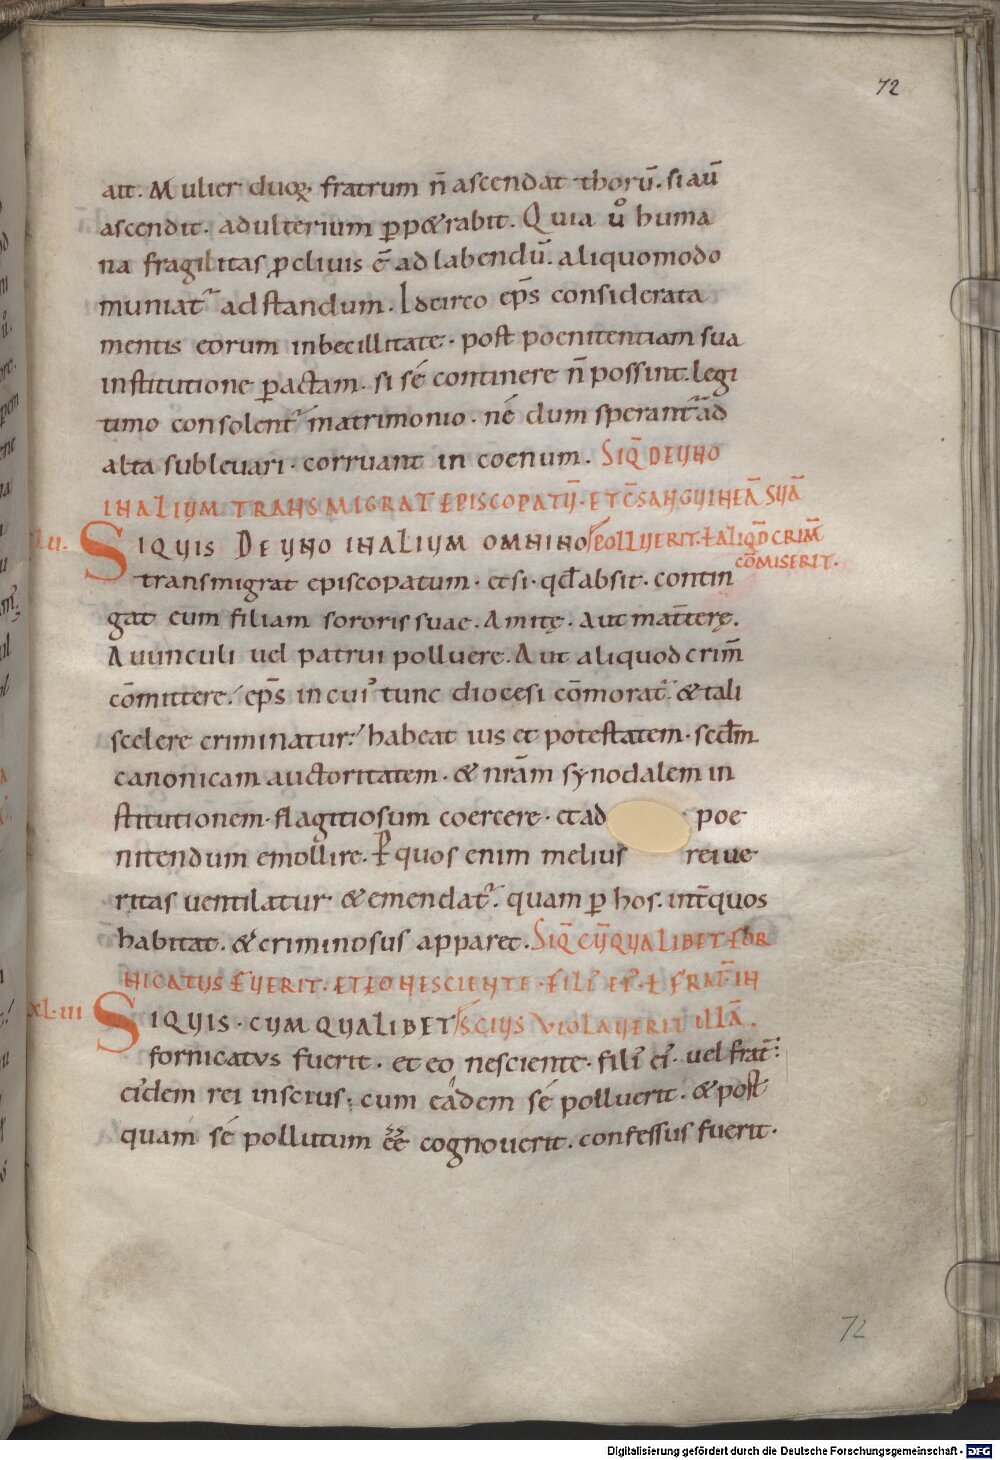 72
ait. Mulier duorꝝ fratrum n̄ ascendat thorū. si aū
ascendit. adulterium ꝑpetrabit. Quia ůo huma
na fragilitas ꝓclivis ē ad labendū. aliquomodo
muniat᷑ ad standum. Idcirco ep̄s considerata
mentis eorum inbecillitate. post poenitentiam sua
institutione ꝑactam. si sé continere n̄ possint. legi
timo consolent᷑ matrimonio. né dum sperant᷑ ad
alta sublevari. corruant in coenum. SIQ̄ DE UNO
IN ALIUM TRANSMIGRAT EPISCOPATŪ. ET C̄SANGUINEĀ SUĀ
XLII. SIQUIS DE UNO IN ALIUM OMNINO POLLUERIT. ł ALIQD̄ CRIM̄
CŌMISERIT.
transmigrat episcopatum. et si. qd̄ absit. contin
gat cum filiam sororis suae. Amitę. aut mat̄terę.
Avunculi vel patrui polluere. Aut aliquod crim̄
cōmittere. ep̄s in cui᷒ tunc diocesi cōmorat᷑. & tali
scelere criminatur. habeat ius et potestatem. scd̄m
canonicam auctoritatem. & nr̄am synodalem in
stitutionem. flagitiosum coercere. et ad poe
nitendum emollire. ꝑ quos enim melius rei ve
ritas ventilatur. & emendat᷑. quam ꝑ hos. int̄ quos
habitat. & criminosus apparet. SIQ̄ CŪ QUALIBET FOR
NICATUS FUERIT. ET EO NESCIENTE. FILI᷒ EI᷒. ł FRAT̄ IN
XLIII SIQUIS. CUM QUALIBET SCIUS VIOLAUERIT ILLĀ.
fornicatus fuerit. et eo nesciente. fili᷒ ei᷒. vel frat̄
ei᷒dem rei inscius. cum eadem sé polluerit. & post
quam sé pollutum ēē cognoverit. confessus fuerit.
72
Digitalisierung gefördert durch die Deutsche Forschungsgemeinschaft - DFG